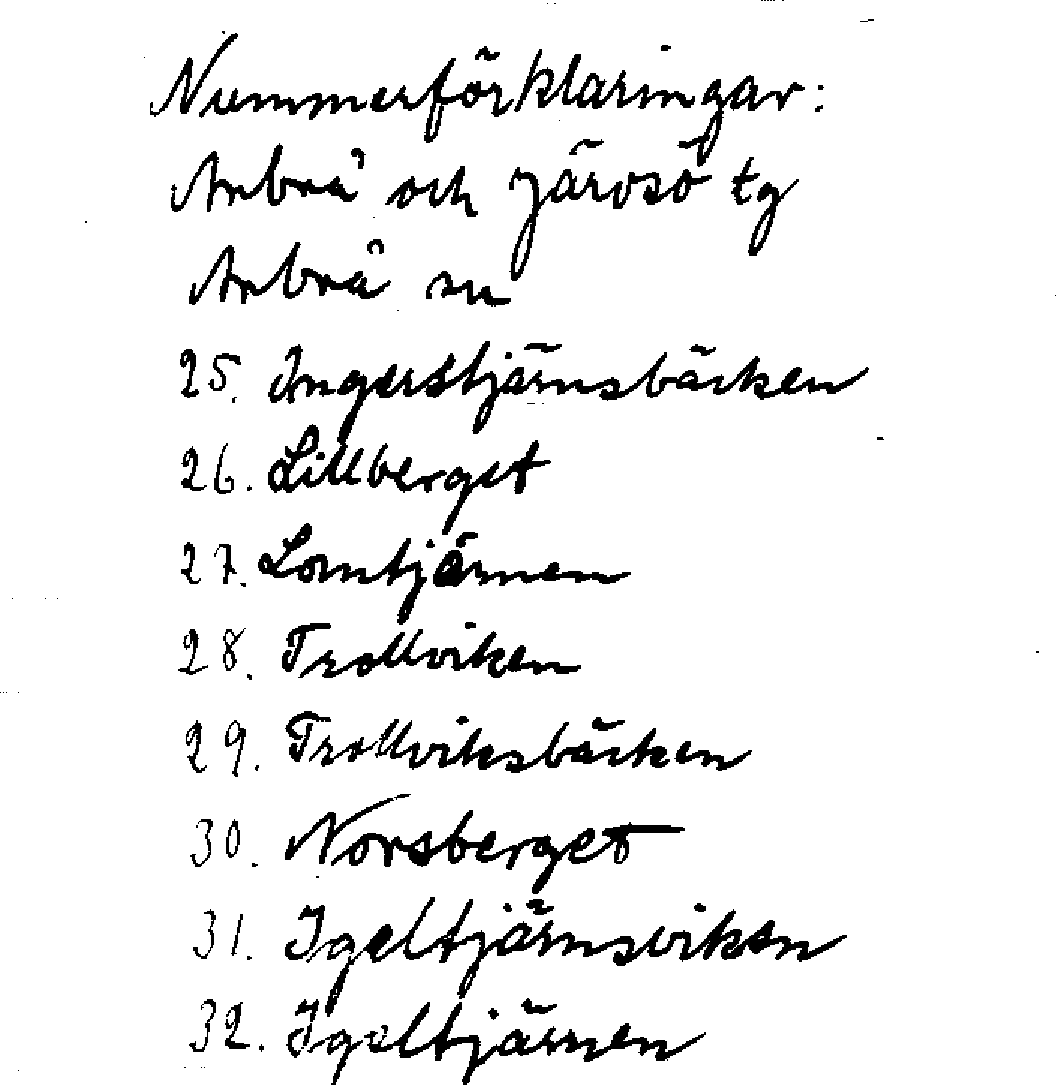 Nummerförklaringar:
Arbrå och Järvsö tg
Arbrå sn
25. Ingerstjärnsbäcken
26. Lillberget
27. Lomtjärnen
28. Trollviken
29. Trollviksbäcken
30. Norsberget
31. Igeltjärnsviken
32. Igeltjärnen